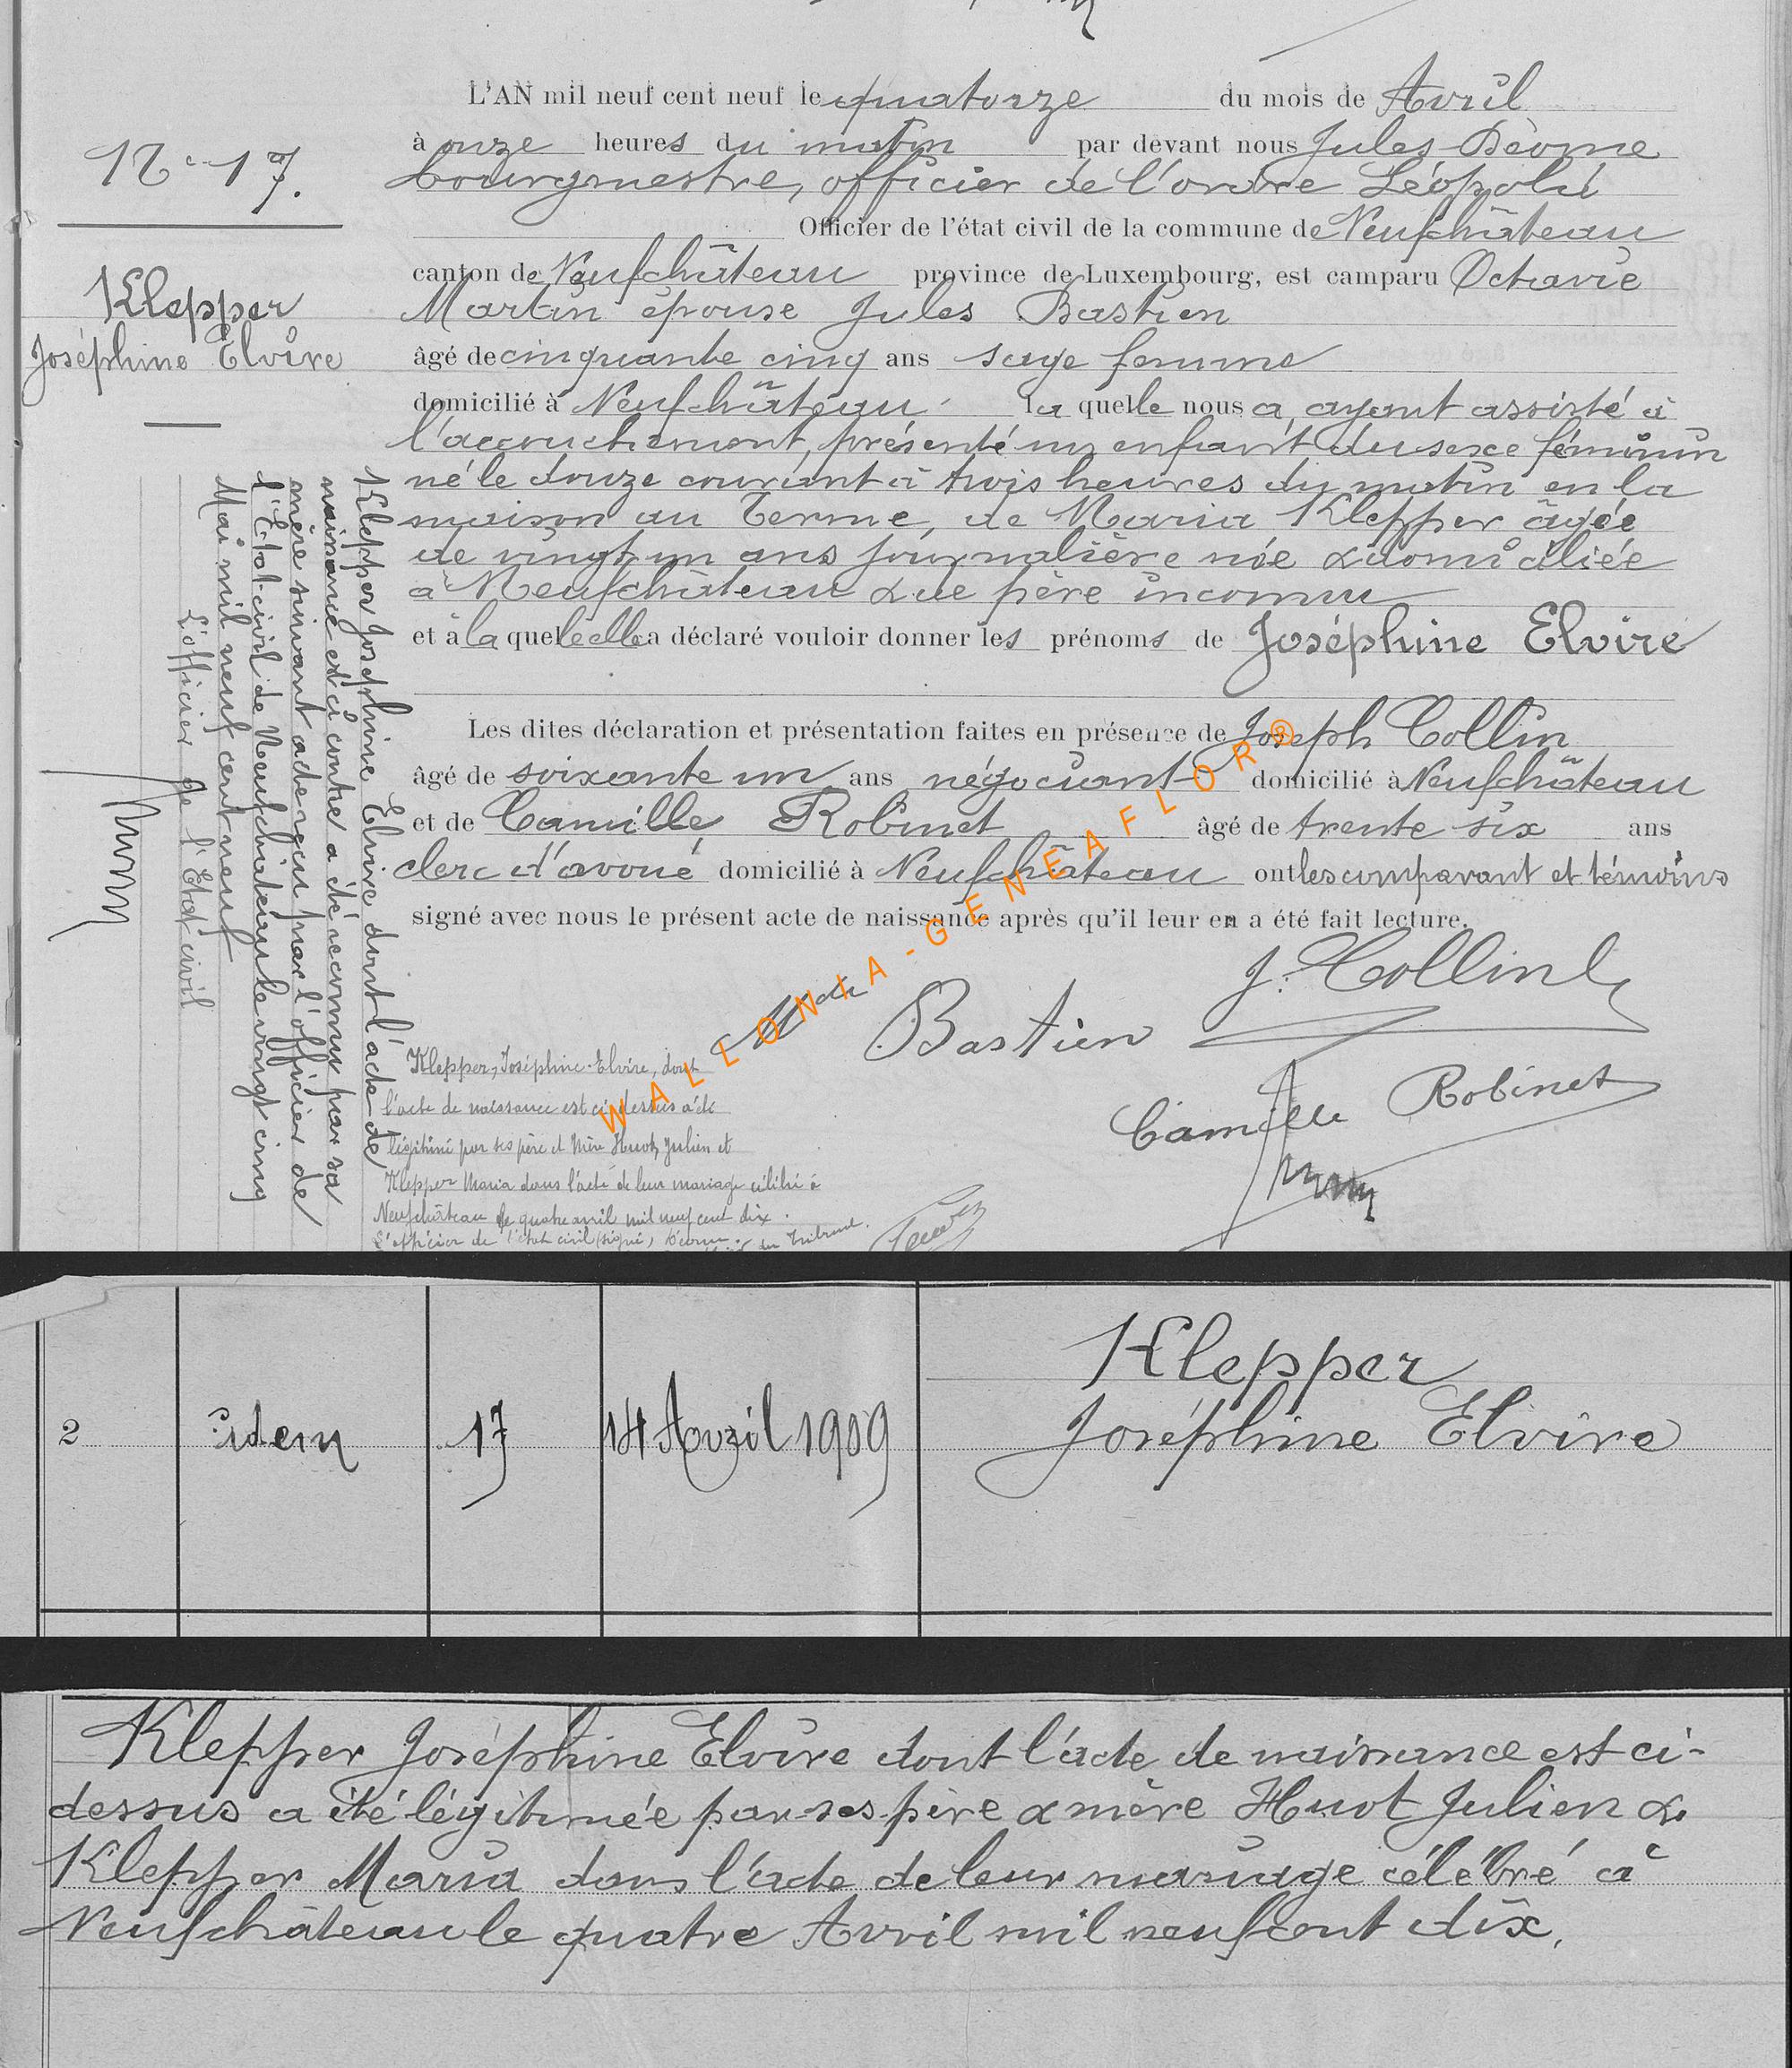 L'AN mil neuf cent neuf le quatorze du mois de Avril
à onze heures du matin par devant nous Jules Déome
bourgmestre, officier de l'ordre Léopold
Officier de l'état civil de la commune de Neufchâteau
canton de Neufchâteau province de Luxembourg, est comparu Octavie
Martin épouse Jules Bastien
âgé de cinquante cinq ans sage femme
domicilié à Neufchâteau la quelle nous a, ayant assisté à
l'accouchement, présenté un enfant du sexe féminin
né le douze courant à trois heures du matin en la
maison au Terme, de Maria Klepper âgée
de vingt un ans journalière née & domiciliée
à Neufchâteau & de père inconnu
et à la quelle elle a déclaré vouloir donner les prénoms de Joséphine Elvire
Les dites déclaration et présentation faites en présence de Joseph Collin
âgé de soixante un ans négociant domicilié à Neufchâteau
et de Camille Robinet âgé de trente six ans
clerc d'avoué domicilié à Neufchâteau ont les comparant et témoins
signé avec nous le présent acte de naissance après qu'il leur en a été fait lecture.
N° 17.
Klepper
Joséphine Elvire
Klepper Joséphine Elvire dont l'acte de
naissance est ci contre a été reconnu par sa
mère suivant acte reçu par l'officier de
l'Etat-civil de Neufchâteau le vingt cinq
Mai mil neuf cent neuf
L'officier de l'Etat civil
J. Collin
Bastien
Camille Robinet
Klepper, Joséphine-Elvire, dont
l'acte de naissance est ci-dessus a été
légitimé par ses père et Mère Huot, Julien et
Klepper Maria dans l'acte de leur mariage célébré à
Neufchâteau le quatre avril mil neuf cent dix.
L'officier de l'état civil (signé) Déome.
du Tribunal.
WALLONIA-GENEAFLOR®
2 idem 17 14 Avril 1909 Klepper
Joséphine Elvire
Klepper Joséphine Elvire dont l'acte de naissance est ci-
dessus a été légitimée par ses père & mère Huot Julien &
Klepper Maria dans l'acte de leur mariage célébré à
Neufchâteau le quatre Avril mil neuf cent dix.